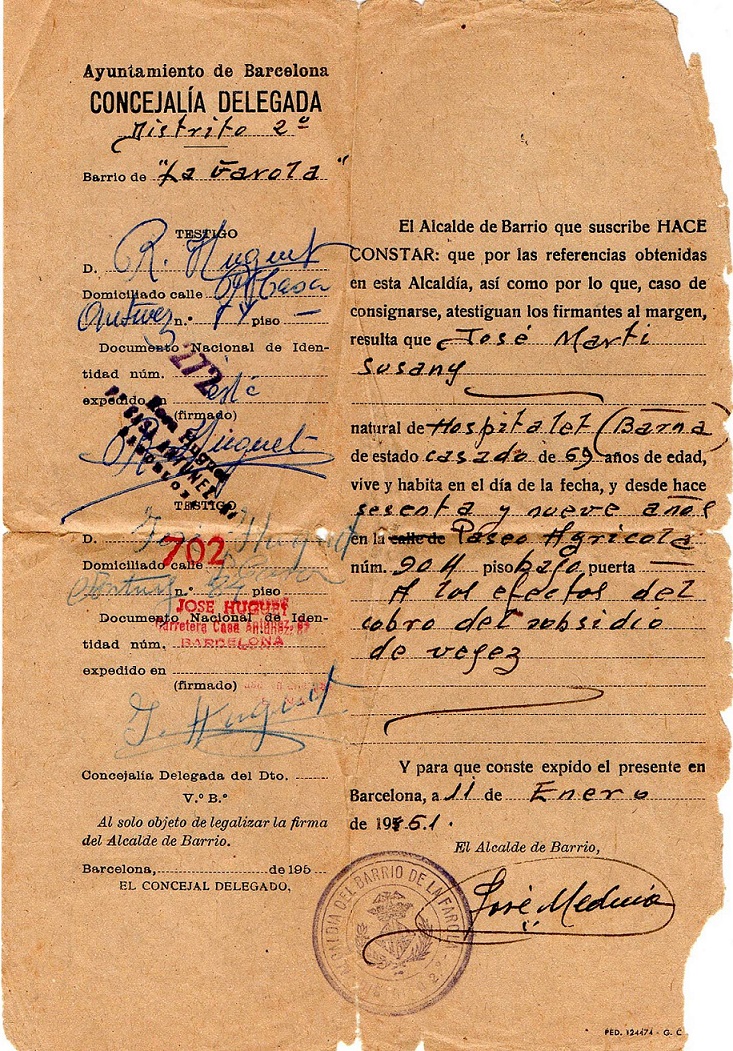 Ayuntamiento de Barcelona
CONCEJALÍA DELEGADA
Distrito 2º
Barrio de "La Farola"
TESTIGO
D. R. Huguet
Domiciliado calle Casa
Antunez n.º 77 piso —
Documento Nacional de Iden-
tidad núm. 272
expedido
(firmado)
R. Huguet
TESTIGO
D. José Huguet
702
Domiciliado calle
n.º piso
JOSE HUGUET
Documento Nacional de Iden-
Carretera Casa Antunez,
tidad núm.
BARCELONA
expedido en
(firmado)
J. Huguet
Concejalía Delegada del Dto.
V.º B.º
Al solo objeto de legalizar la firma
del Alcalde de Barrio.
Barcelona, de 195
EL CONCEJAL DELEGADO,
El Alcalde de Barrio que suscribe HACE
CONSTAR: que por las referencias obtenidas
en esta Alcaldía, así como por lo que, caso de
consignarse, atestiguan los firmantes al margen,
resulta que José Marti
Susany
natural de Hospitalet (Barna)
de estado casado de 69 años de edad,
vive y habita en el día de la fecha, y desde hace
sesenta y nueve años
en la calle de Paseo Agricola
núm. 904 piso bajo puerta —
A los efectos del
cobro del subsidio
de vejez
Y para que conste expido el presente en
Barcelona, a 11 de Enero
de 1961.
El Alcalde de Barrio,
José Medina
ALCALDIA DEL BARRIO DE LA FAROLA
PED. 124474 - G. C.